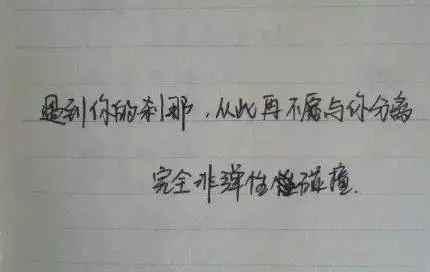 遇到你的刹那,从此再不愿与你分离
完全非弹性碰撞.